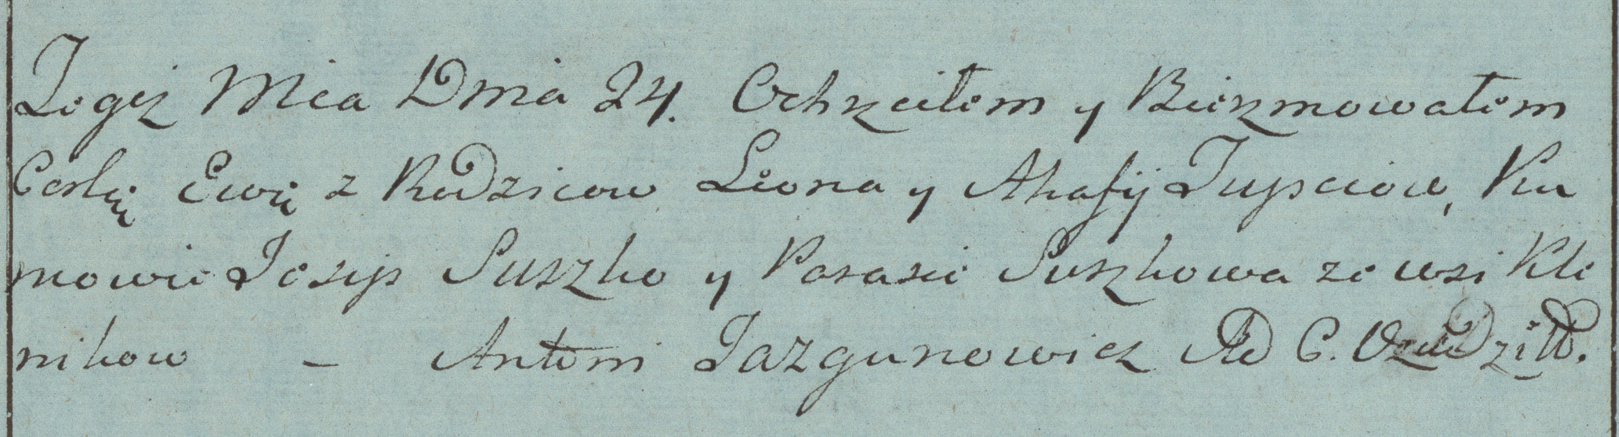 Tegoż Mca Dnia 24. Ochrzciłem y Bierzmowałem
Corkę Ewę z Rodzicow Leona y Ahafij Jupciow, Ku
mowie Josip Suszko y Parasie Suszkowa ze wsi Kle
nikow – Antoni Jazgunowicz AD C.